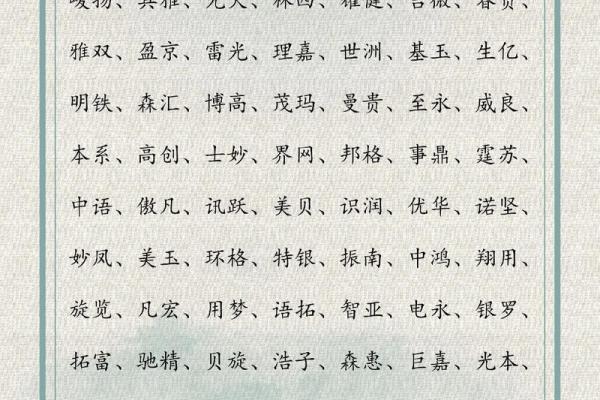 雅双、盈京、雷光、理嘉、世洲、基玉、生亿、
明铁、森汇、博高、茂玛、曼贵、至永、威良、
本系、高创、士妙、界网、邦格、事鼎、霆苏、
中语、傲凡、讯跃、美贝、识润、优华、诺坚、
妙凤、美玉、环格、特银、振南、中鸿、翔用、
旋览、凡宏、用梦、语拓、智亚、电永、银罗、
拓富、驰精、贝旋、浩子、森惠、巨嘉、光本、